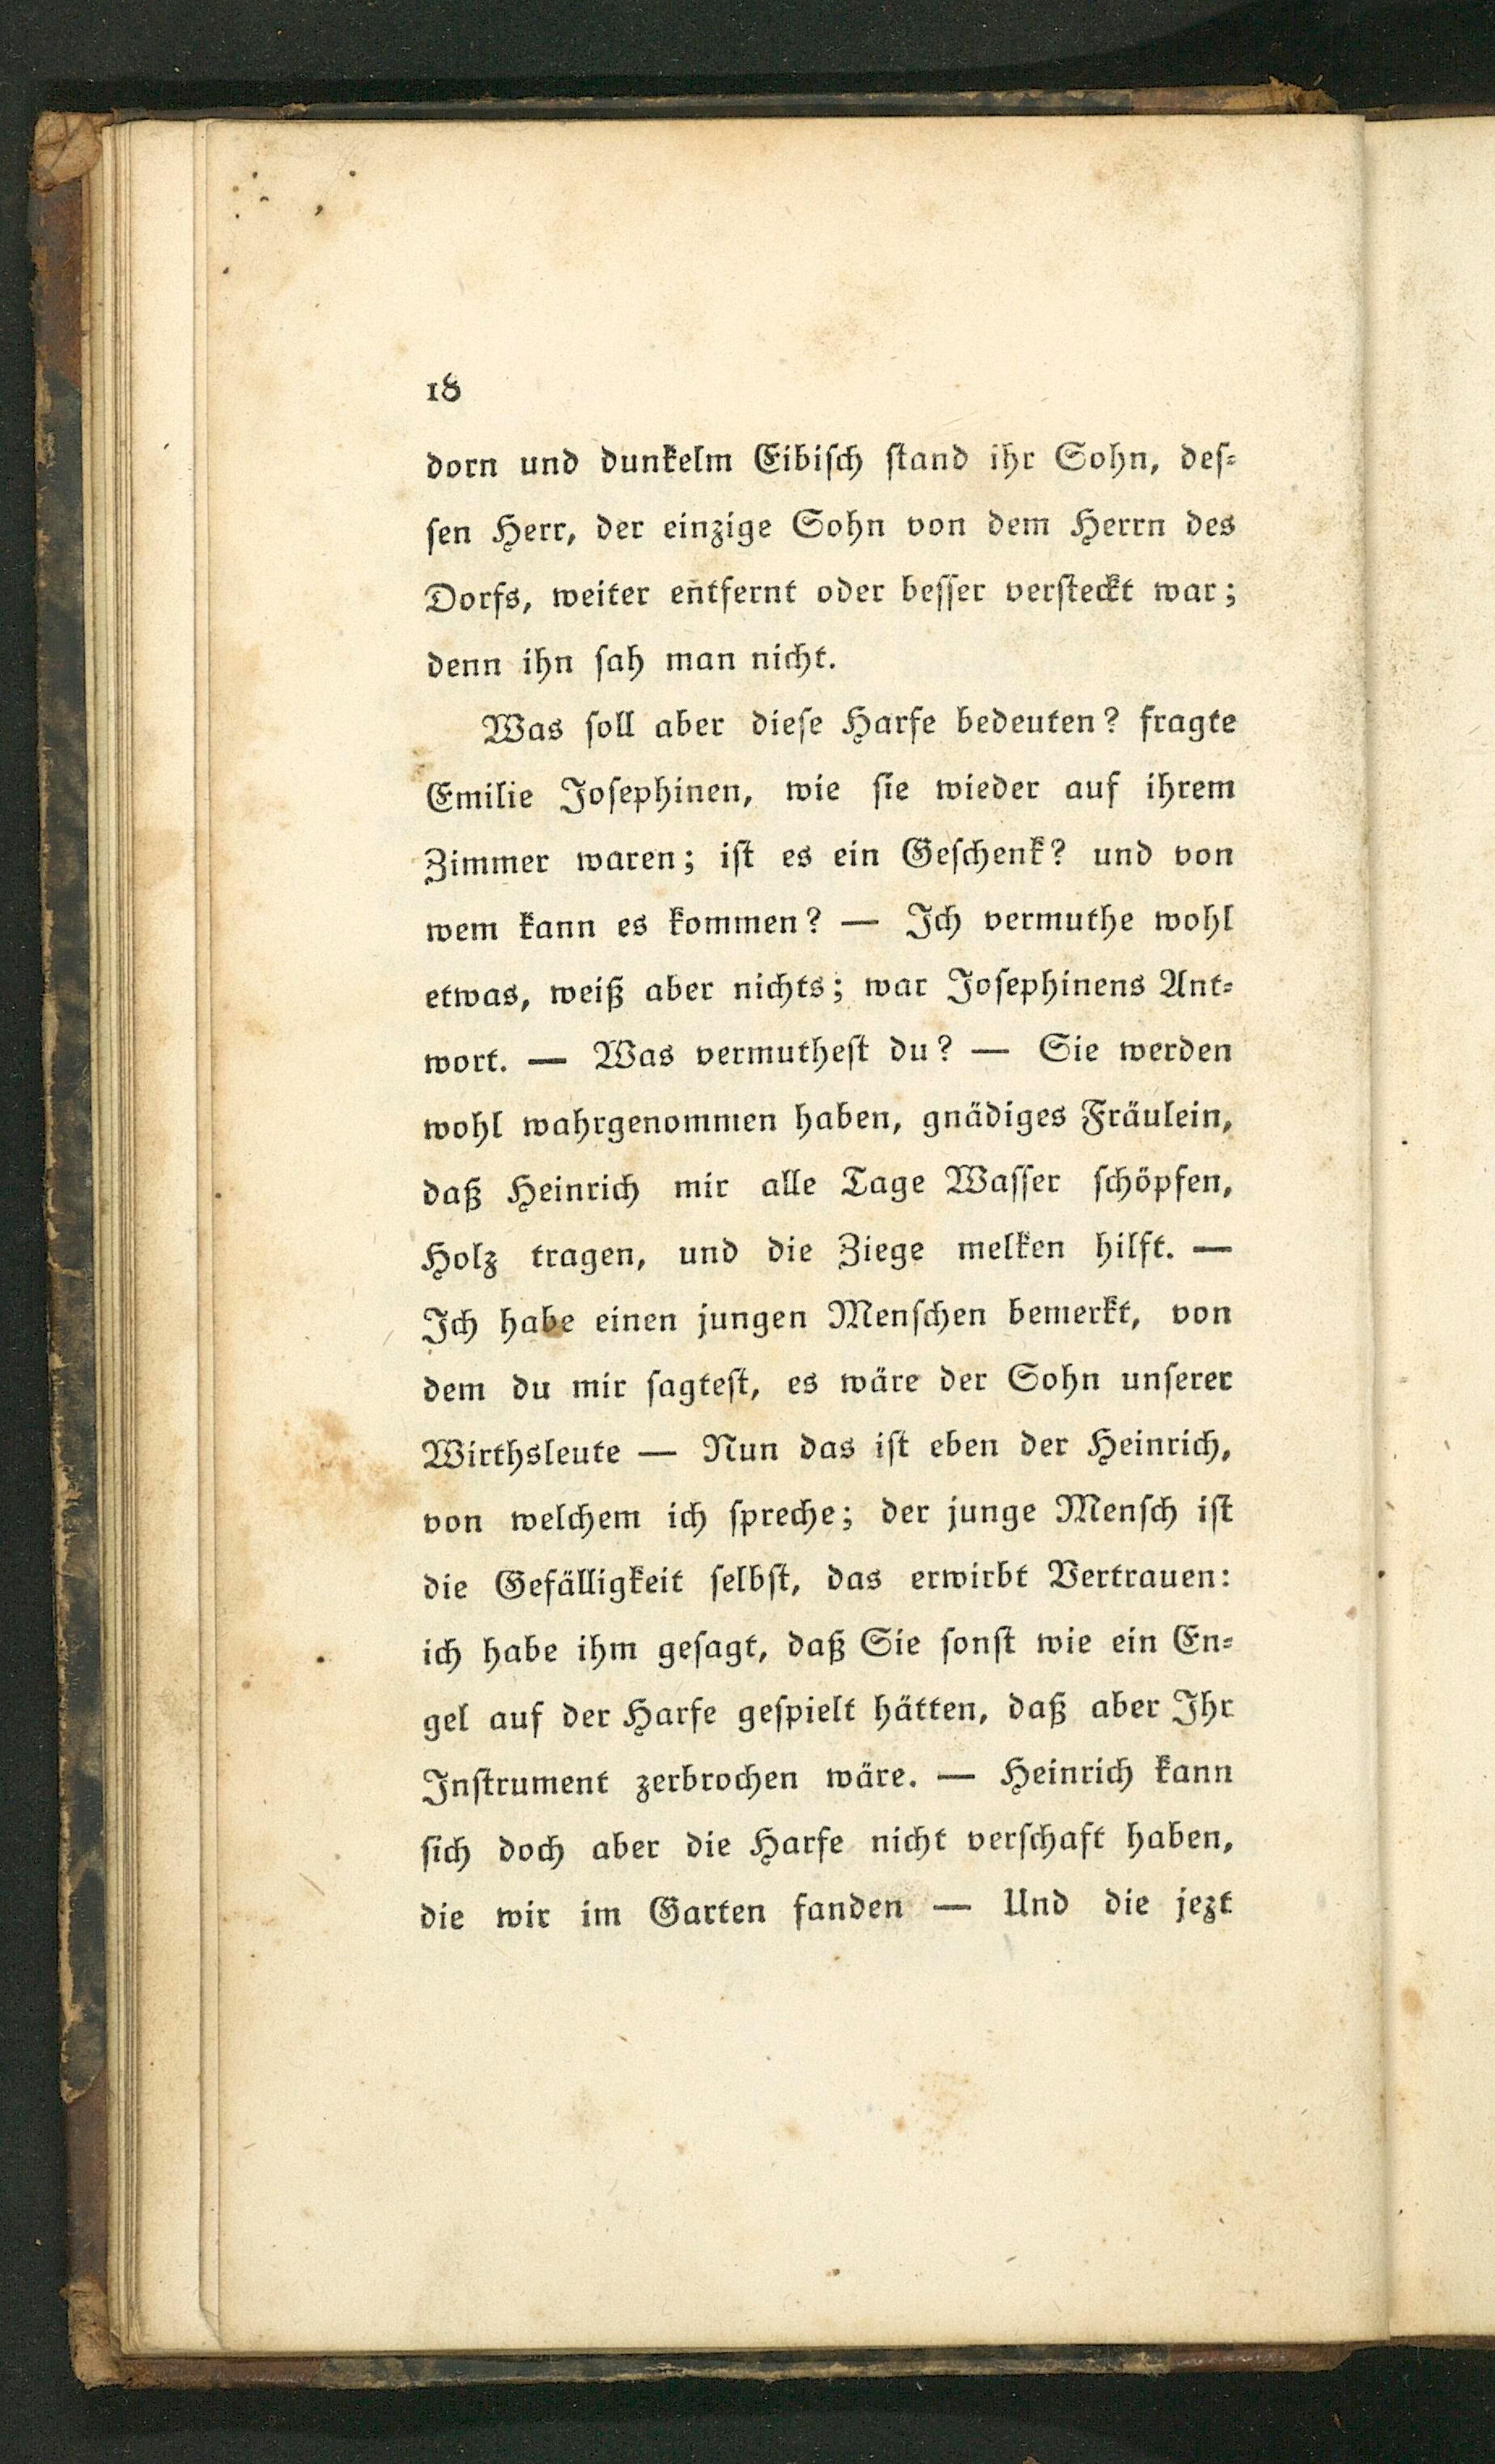 18
dorn und dunkelm Eibiſch ſtand ihr Sohn, deſ⸗
ſen Herr, der einzige Sohn von dem Herrn des
Dorfs, weiter entfernt oder beſſer verſteckt war;
denn ihn ſah man nicht.
Was ſoll aber dieſe Harfe bedeuten? fragte
Emilie Joſephinen, wie ſie wieder auf ihrem
Zimmer waren; iſt es ein Geſchenk? und von
wem kann es kommen? — Ich vermuthe wohl
etwas, weiß aber nichts; war Joſephinens Ant⸗
wort. — Was vermutheſt du? — Sie werden
wohl wahrgenommen haben, gnädiges Fräulein,
daß Heinrich mir alle Tage Waſſer ſchöpfen,
Holz tragen, und die Ziege melken hilft. —
Ich habe einen jungen Menſchen bemerkt, von
dem du mir ſagteſt, es wäre der Sohn unſerer
Wirthsleute — Nun das iſt eben der Heinrich,
von welchem ich ſpreche; der junge Menſch iſt
die Gefälligkeit ſelbſt, das erwirbt Vertrauen:
ich habe ihm geſagt, daß Sie ſonſt wie ein En⸗
gel auf der Harfe geſpielt hätten, daß aber Ihr
Inſtrument zerbrochen wäre. — Heinrich kann
ſich doch aber die Harfe nicht verſchaft haben,
die wir im Garten fanden — Und die jezt